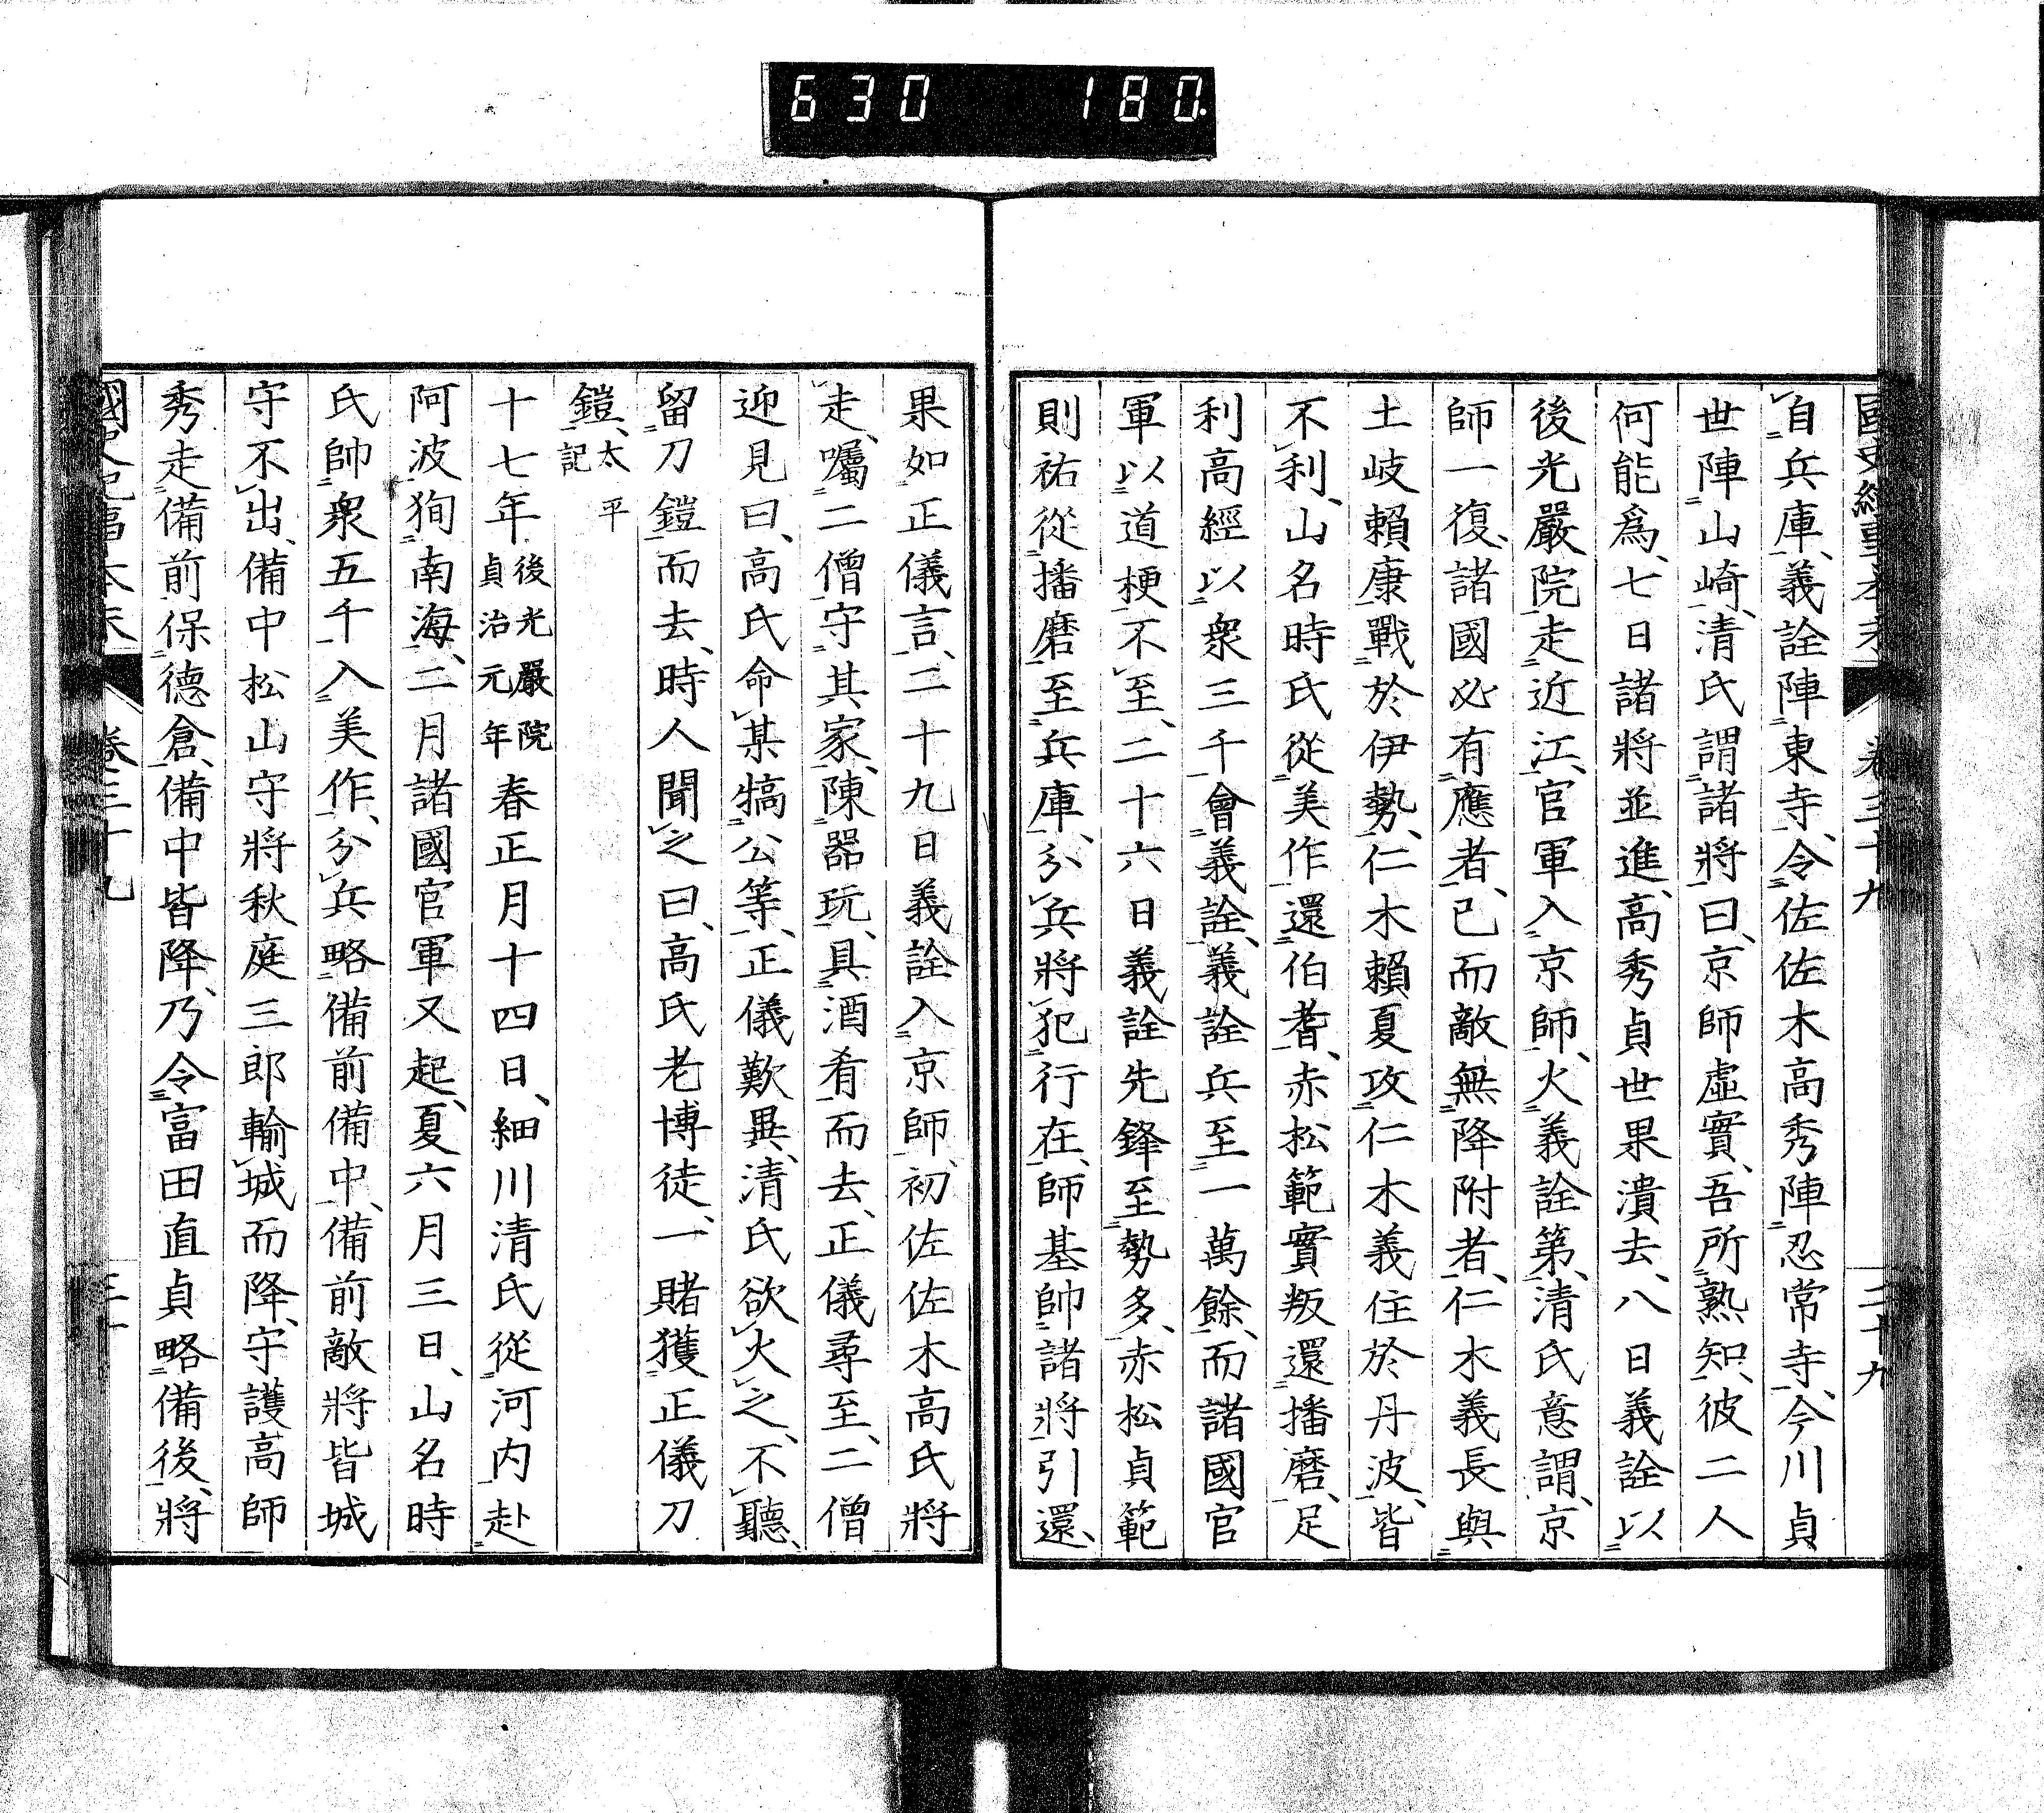 630 180
自兵庫、義詮陣東寺、令佐佐木高秀陣忍常寺、今川貞
世陣山崎、清氏謂諸將曰、京師虛實、吾所熟知、彼二人
何能爲、七日諸將並進、高秀貞世果潰去、八日義詮以
後光嚴院走近江、官軍入京師、火義詮第、清氏意謂、京
師一復、諸國必有應者、已而敵無降附者、仁木義長與
土岐賴康戰於伊勢、仁木賴夏攻仁木義住於丹波、皆
不利、山名時氏從美作還伯耆、赤松範實叛還播磨、足
利高經以衆三千會義詮、義詮兵至一萬餘、而諸國官
軍以道梗不至、二十六日義詮先鋒至勢多、赤松貞範
則祐從播磨至兵庫、分兵將犯行在、師基帥諸將引還、
果如正儀言、二十九日義詮入京師、初佐佐木高氏將
走、囑二僧守其家、陳器玩、具酒肴而去、正儀尋至、二僧
迎見曰、高氏命某犒公等、正儀歎異、清氏欲火之、不聽、
留刀鎧而去、時人聞之曰、高氏老博徒、一賭獲正儀刀
鎧、太平記
十七年後光嚴院貞治元年春正月十四日、細川清氏從河内赴
阿波狥南海、二月諸國官軍又起、夏六月三日、山名時
氏帥衆五千入美作、分兵略備前備中、備前敵將皆城
守不出、備中松山守將秋庭三郎輸城而降、守護高師
秀走備前保德倉、備中皆降、乃令富田直貞略備後、將
卷三十九